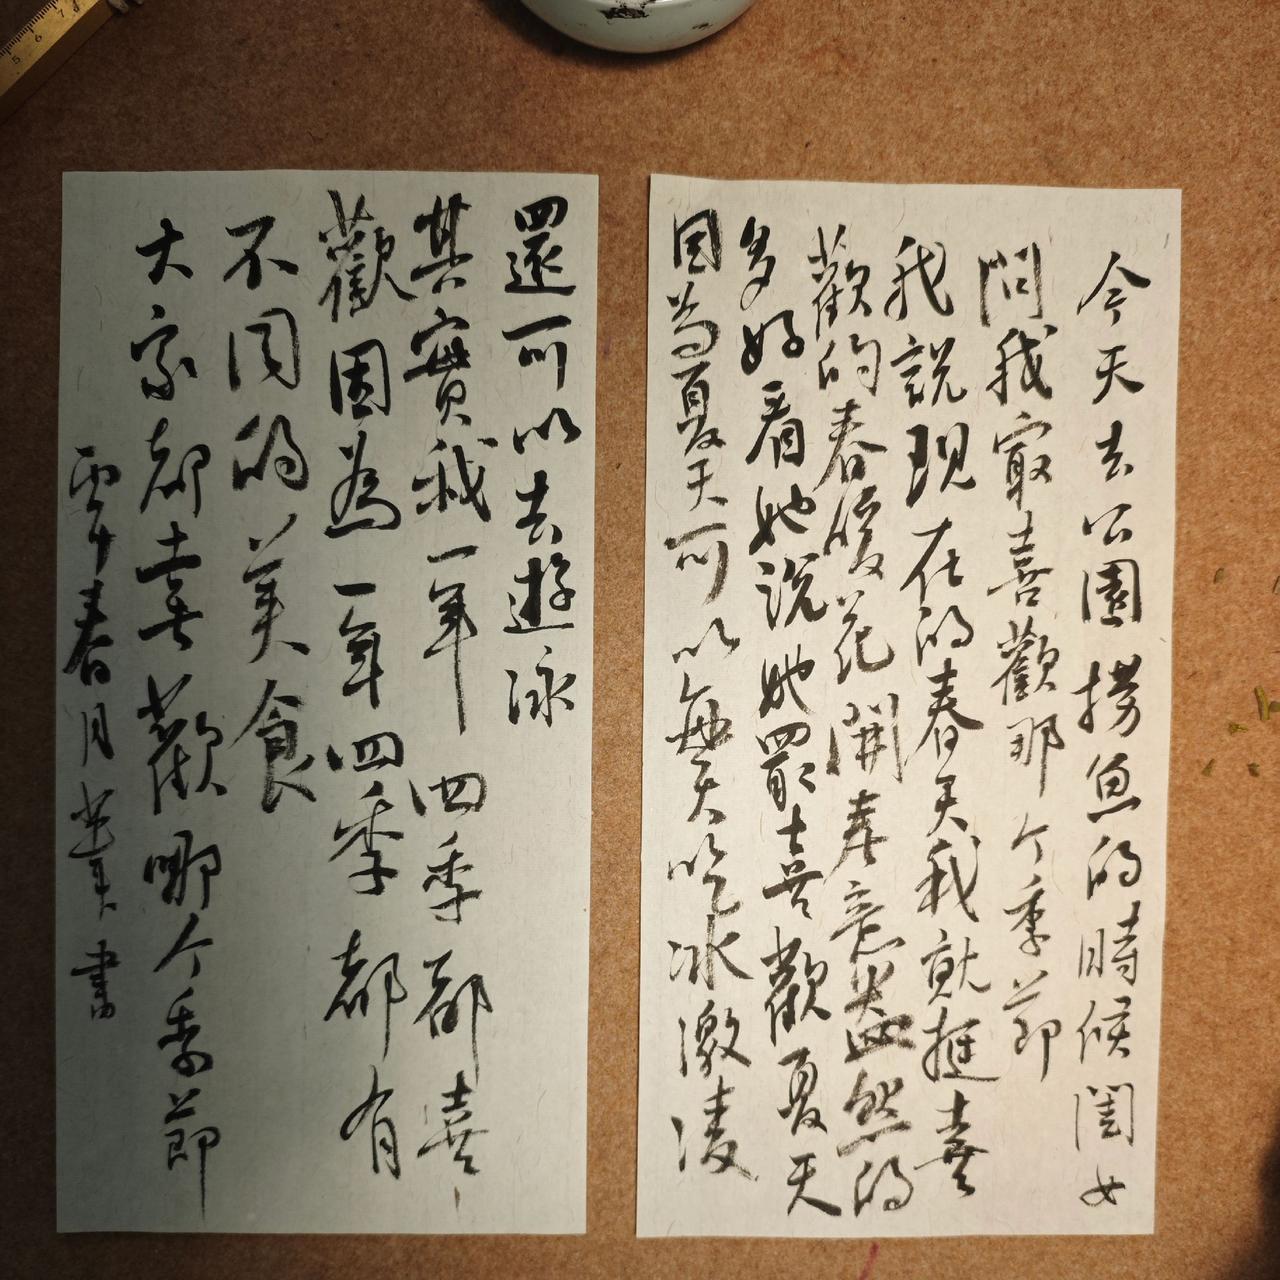 今天去公園撈魚的時候閨女
問我最喜歡那个季節
我説現在的春天我就挺喜
歡的春暖花開春意盎然的
多好看她説她最喜歡夏天
因为夏天可以每天吃冰激凌
還可以去遊泳
其實我一年四季都喜
歡因為一年四季都有
不同的美食
大家都喜歡哪个季節
春月 書
5 6 7